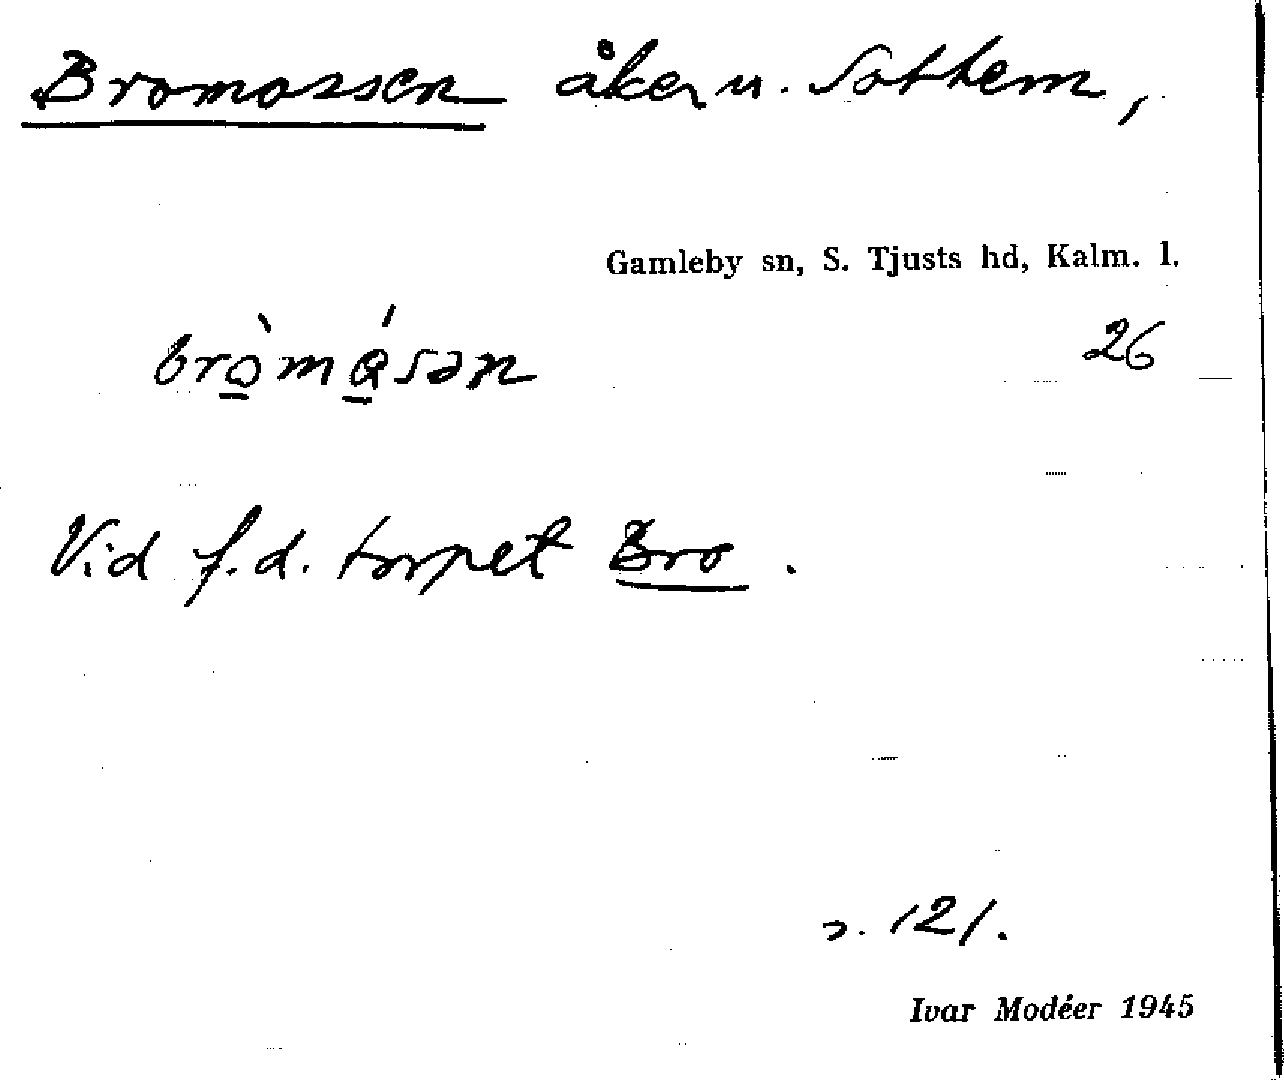 Bromossen åker u. Sothem,
Gamleby sn, S. Tjusts hd, Kalm. l.
26
Vid f.d. torpet Bro.
s. 121.
Ivar Modéer 1945